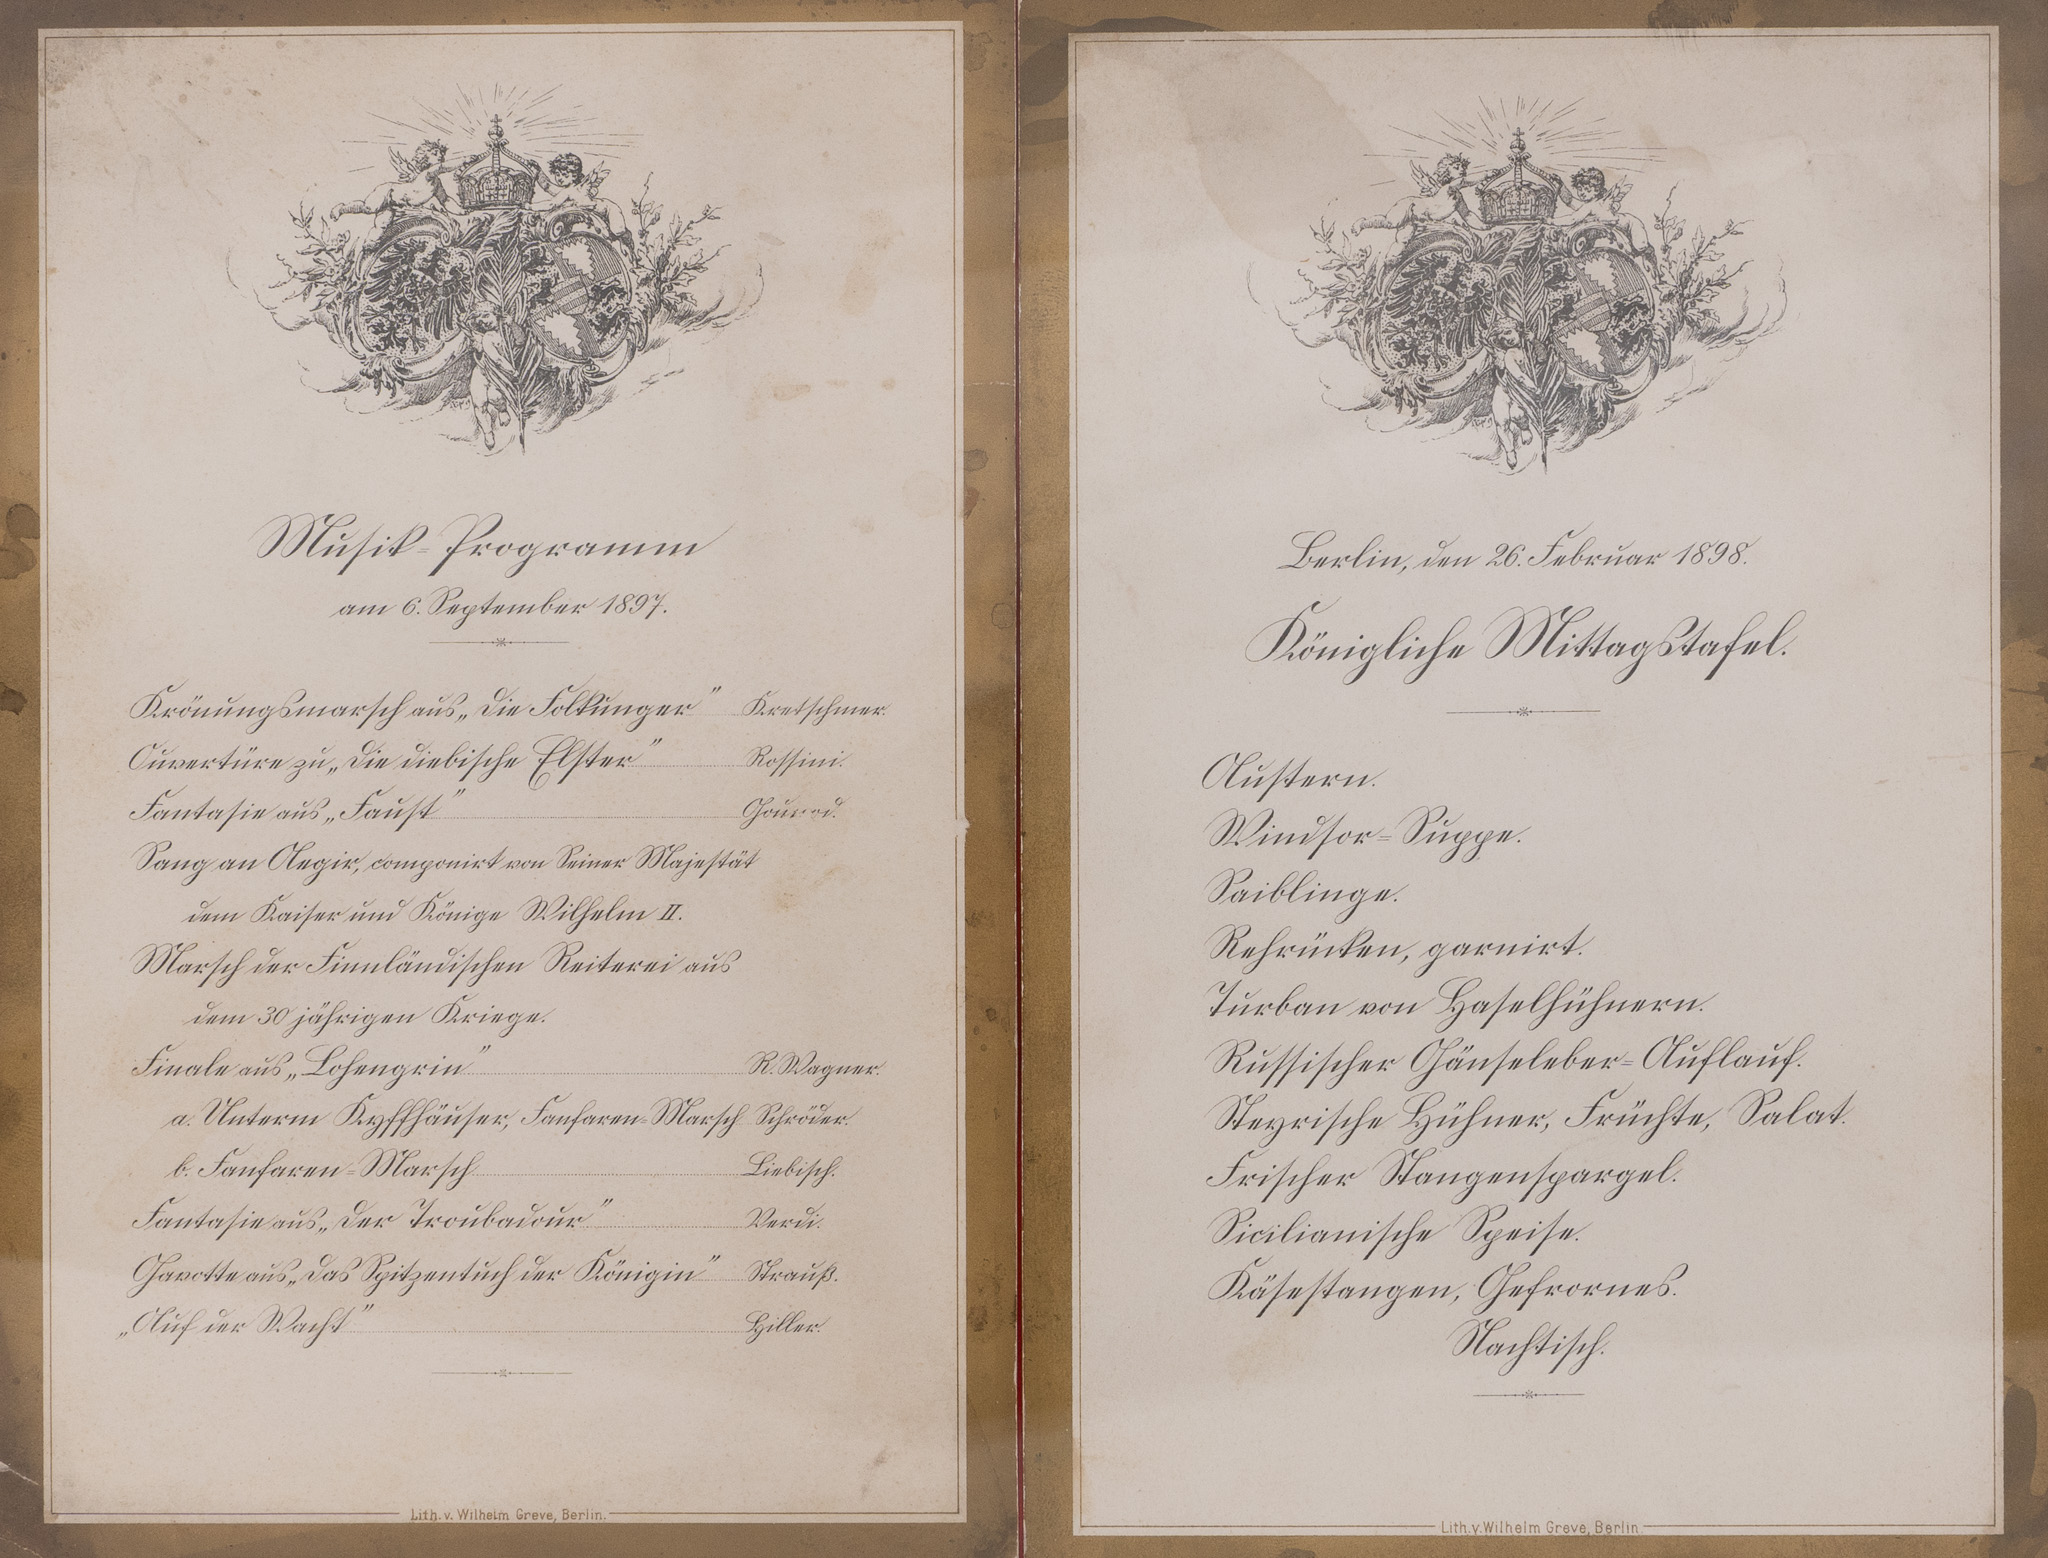 Musik-Programm
am 6. September 1897.
Krönungsmarsch aus „Die Folkunger" Kretschmer.
Ouvertüre zu „Die diebische Elster" Rossini.
Fantasie aus „Faust" Gounod.
Sang an Aegir, componirt von Seiner Majestät
dem Kaiser und Könige Wilhelm II.
Marsch der Finnländischen Reiterei aus
dem 30 jährigen Kriege.
Finale aus „Lohengrin" R. Wagner.
a. Unterm Kyffhäuser, Fanfaren-Marsch Schröder.
b. Fanfaren-Marsch Liebisch.
Fantasie aus „Der Troubadour" Verdi.
Gavotte aus „Das Spitzentuch der Königin" Strauß.
„Auf der Wacht" Hiller.
Lith. v. Wilhelm Greve, Berlin.
Berlin, den 26. Februar 1898.
Königliche Mittagstafel.
Austern.
Windsor-Suppe.
Saiblinge.
Rehrücken, garnirt.
Turban von Haselhühnern.
Russischer Gänseleber-Auflauf.
Steyrische Hühner, Früchte, Salat.
Frischer Stangenspargel.
Sicilianische Speise.
Käsestangen, Gefrornes.
Nachtisch.
Lith. v. Wilhelm Greve, Berlin